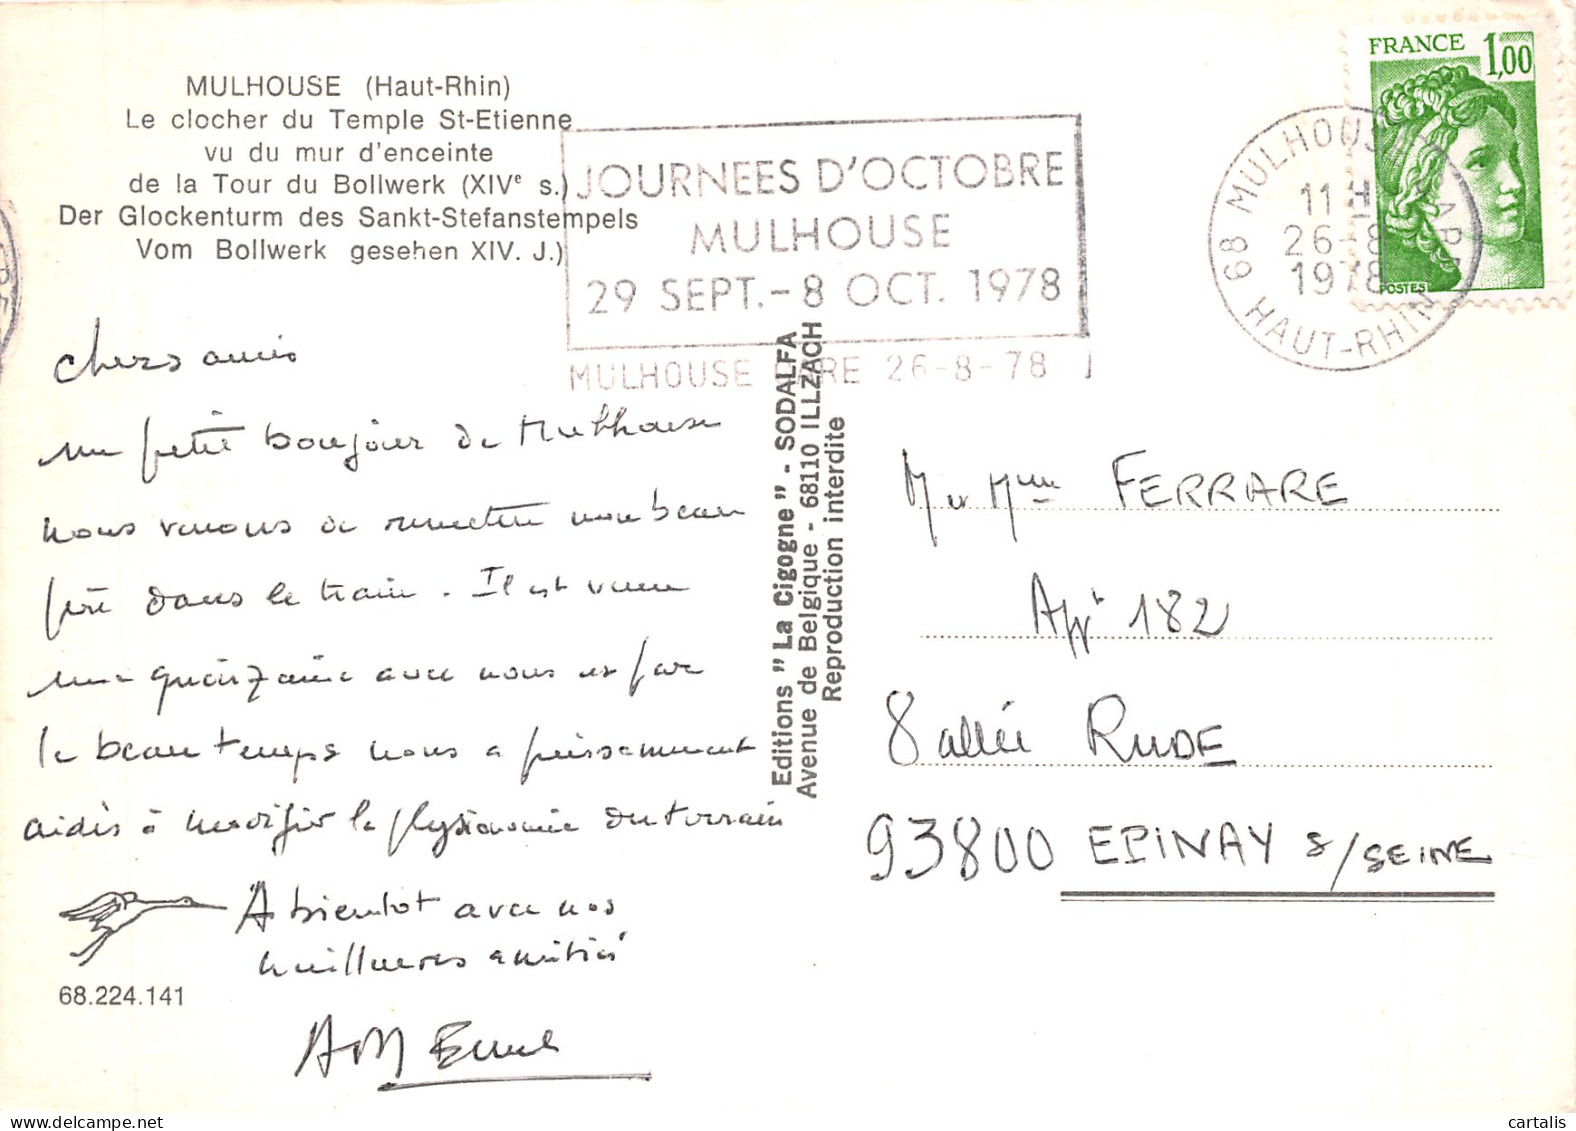 MULHOUSE (Haut-Rhin)
Le clocher du Temple St-Etienne
vu du mur d'enceinte
de la Tour du Bollwerk (XIVe s.)
Der Glockenturm des Sankt-Stefanstempels
Vom Bollwerk gesehen XIV. J.)
JOURNEES D'OCTOBRE
MULHOUSE
29 SEPT.-8 OCT. 1978
MULHOUSE GARE 26-8-78
FRANCE 1,00
POSTES
68 MULHOUSE GARE
11 H
26-8
1978
HAUT-RHIN
Chers amis
un petit bonjour de Mulhouse
nous venons de remettre mon beau
père dans le train. Il est venu
une quinzaine avec nous et par
le beau temps nous a puissamment
aidés à modifier la physionomie du terrain
A bientot avec nos
meilleures amitiés
68.224.141
Editions "La Cigogne" - SODALFA
Avenue de Belgique - 68110 ILLZACH
Reproduction interdite
M et Mme FERRARE
Appt 182
8 allée RUDE
93800 EPINAY s/SEINE
delcampe.net
cartalis